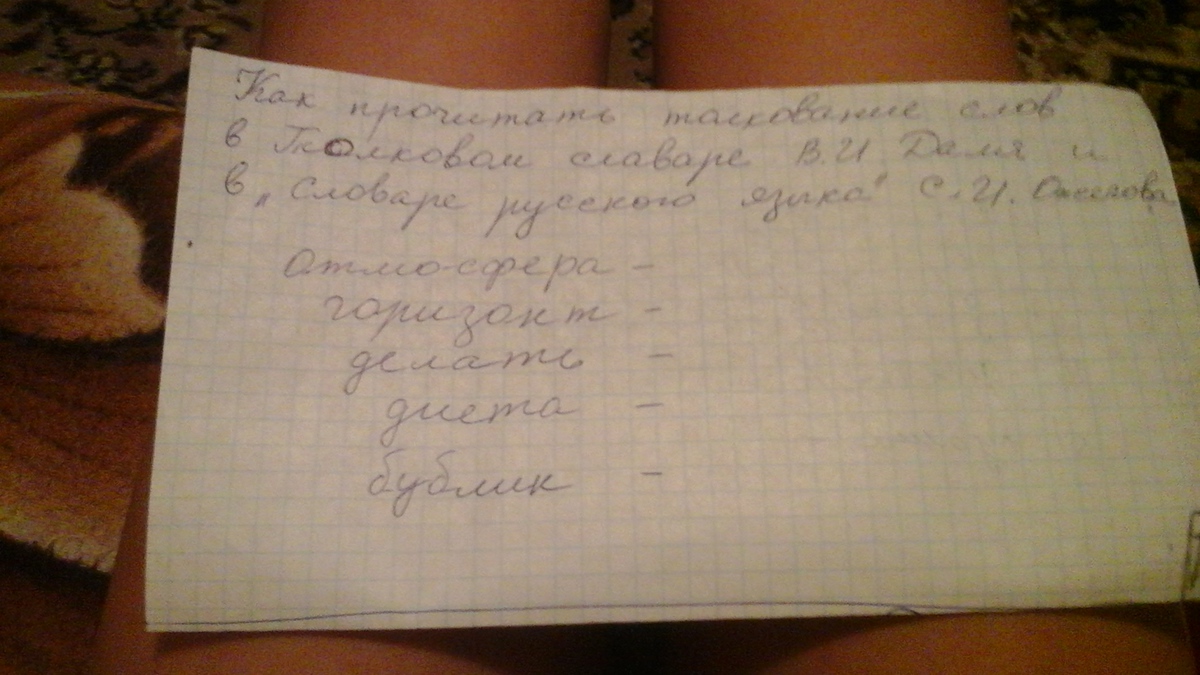 Как прочитать толкование слов
в Толковом словаре В.И Даля и
в „Словаре русского языка" С.И. Ожегова
Атмосфера –
горизонт –
делать –
диета –
бублик –